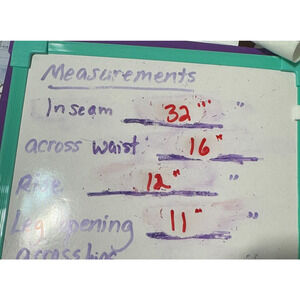 Measurements
Inseam 32" "
across waist 16" "
Rise 12" "
Leg opening 11" "
across